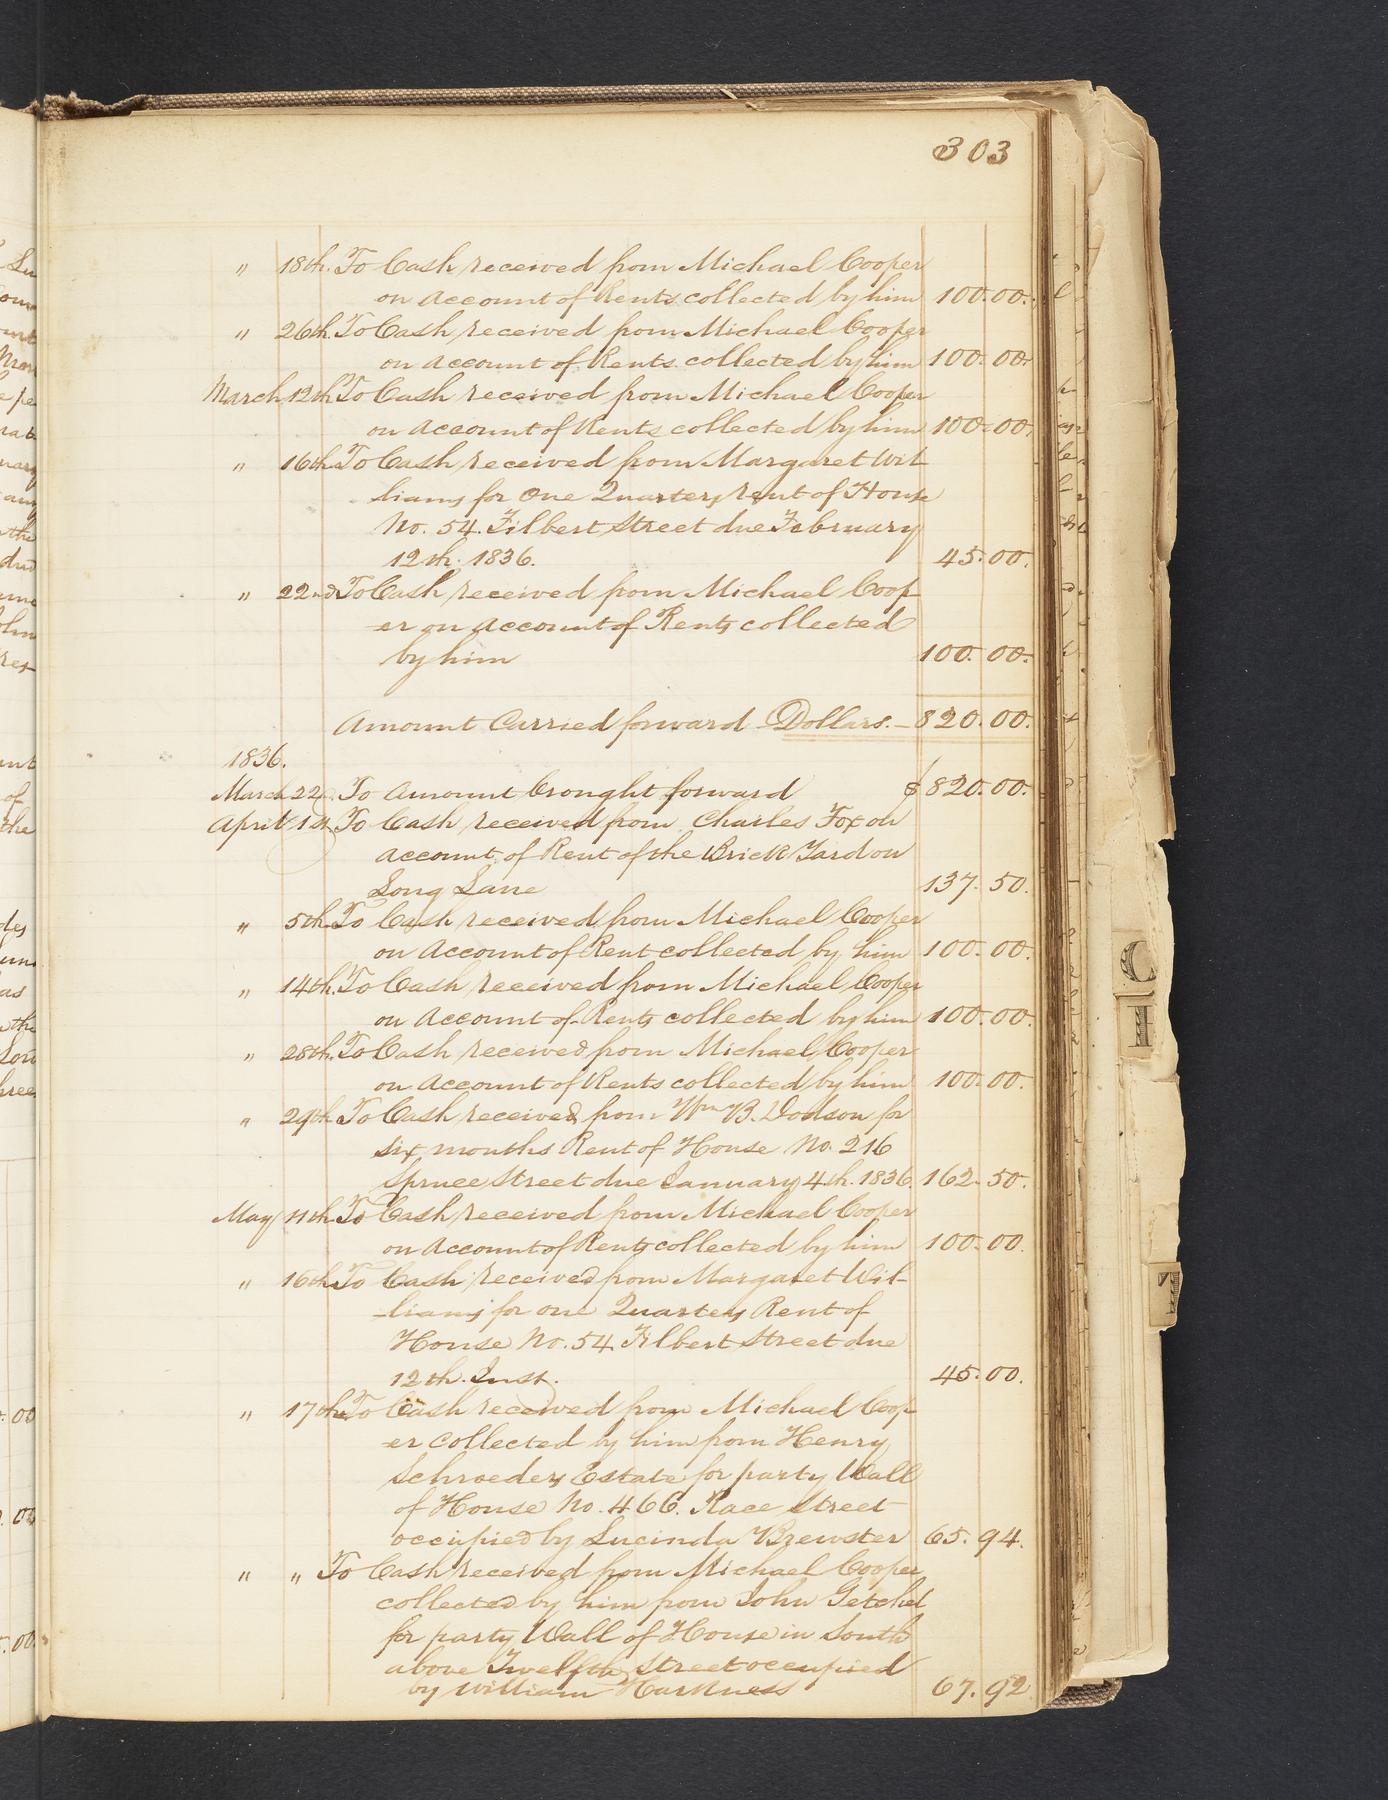 303
" 18th. To Cash received from Michael Cooper
on Account of Rents collected by him 100.00.
" 26th. To Cash received from Michael Cooper
on Account of Rents collected by him 100.00.
March 12th To Cash received from Michael Cooper
on Account of Rents collected by him 100.00.
" 16th To Cash received from Margaret Wil
liams for One Quarters rent of House
No. 54. Filbert Street due February
12th. 1836. 45.00.
" 22nd To Cash received from Michael Coop
er on Account of Rents collected
by him 100.00.
Amount Carried forward Dollars. 820.00.
1836.
March 22d. To Amount brought forward $820.00.
April 1st To Cash received from Charles Fox on
account of Rent of the Brick Yard on
Long Lane 137.50.
" 5th. To Cash received from Michael Cooper
on Account of Rent collected by him 100.00.
" 14th. To Cash received from Michael Cooper
on Account of Rents collected by him 100.00.
" 28th. To Cash received from Michael Cooper
on Account of Rents collected by him 100.00.
" 29th To Cash received from Wm. B. Dodson for
six months Rent of House No. 216
Spruce Street due January 4th. 1836. 162.50.
May 11th To Cash received from Michael Cooper
on Account of Rents collected by him 100.00.
" 16th To Cash received from Margaret Wil-
-liams for one Quarters Rent of
House No. 54 Filbert Street due
12th. Inst. 45.00.
" 17th To Cash received from Michael Coop
er collected by him from Henry
Schroeders Estate for party Wall
of House No. 466. Race Street
occupied by Lucinda Brewster 65.94.
" " To Cash received from Michael Cooper
collected by him from John Getchel
for party Wall of House in South
above Twelfth Street occupied
by William Harkness 67.92